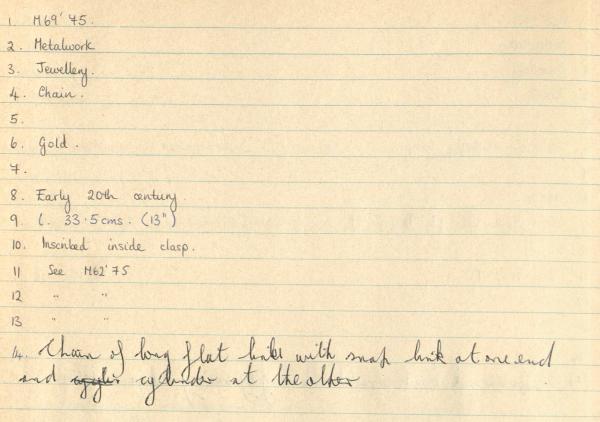 1. M69'75.
2. Metalwork
3. Jewellery.
4. Chain.
5.
6. Gold.
7.
8. Early 20th century.
9. l. 33.5cms. (13")
10. Inscribed inside clasp.
11 See M62'75
12 " "
13 " "
14. Chain of long flat links with snap link at one end
and cylinder at the other